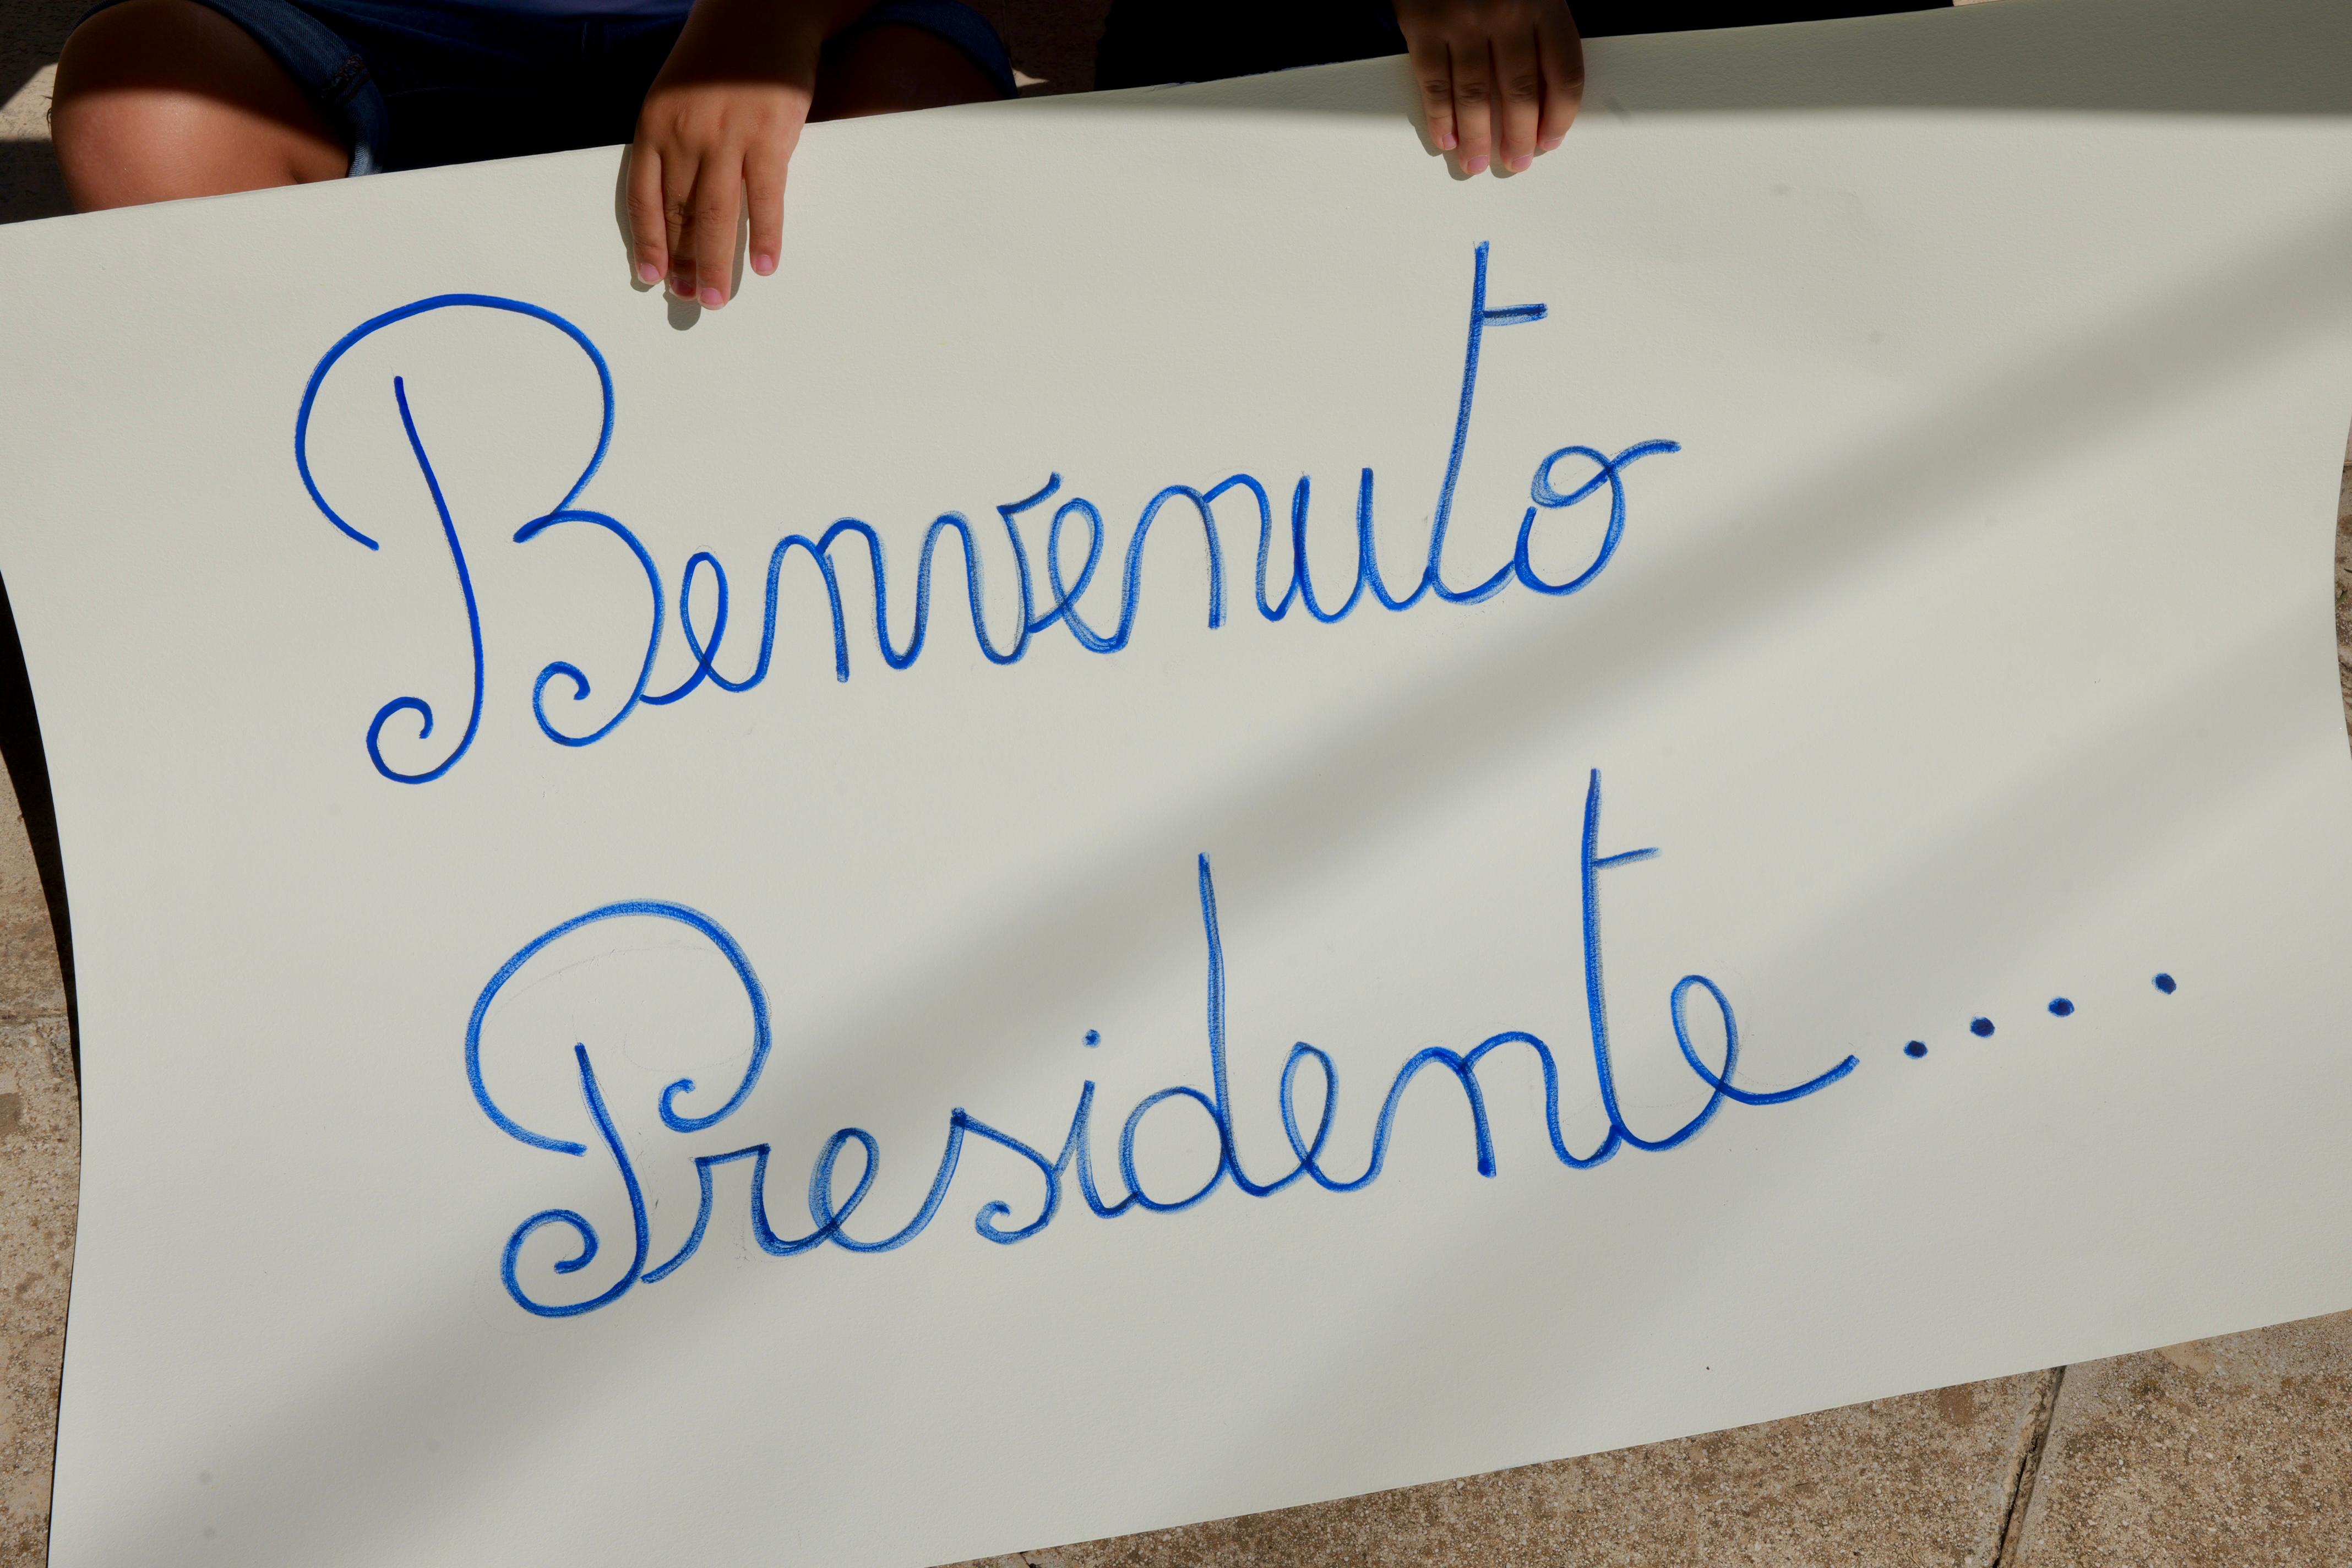 Benvenuto
Presidente....